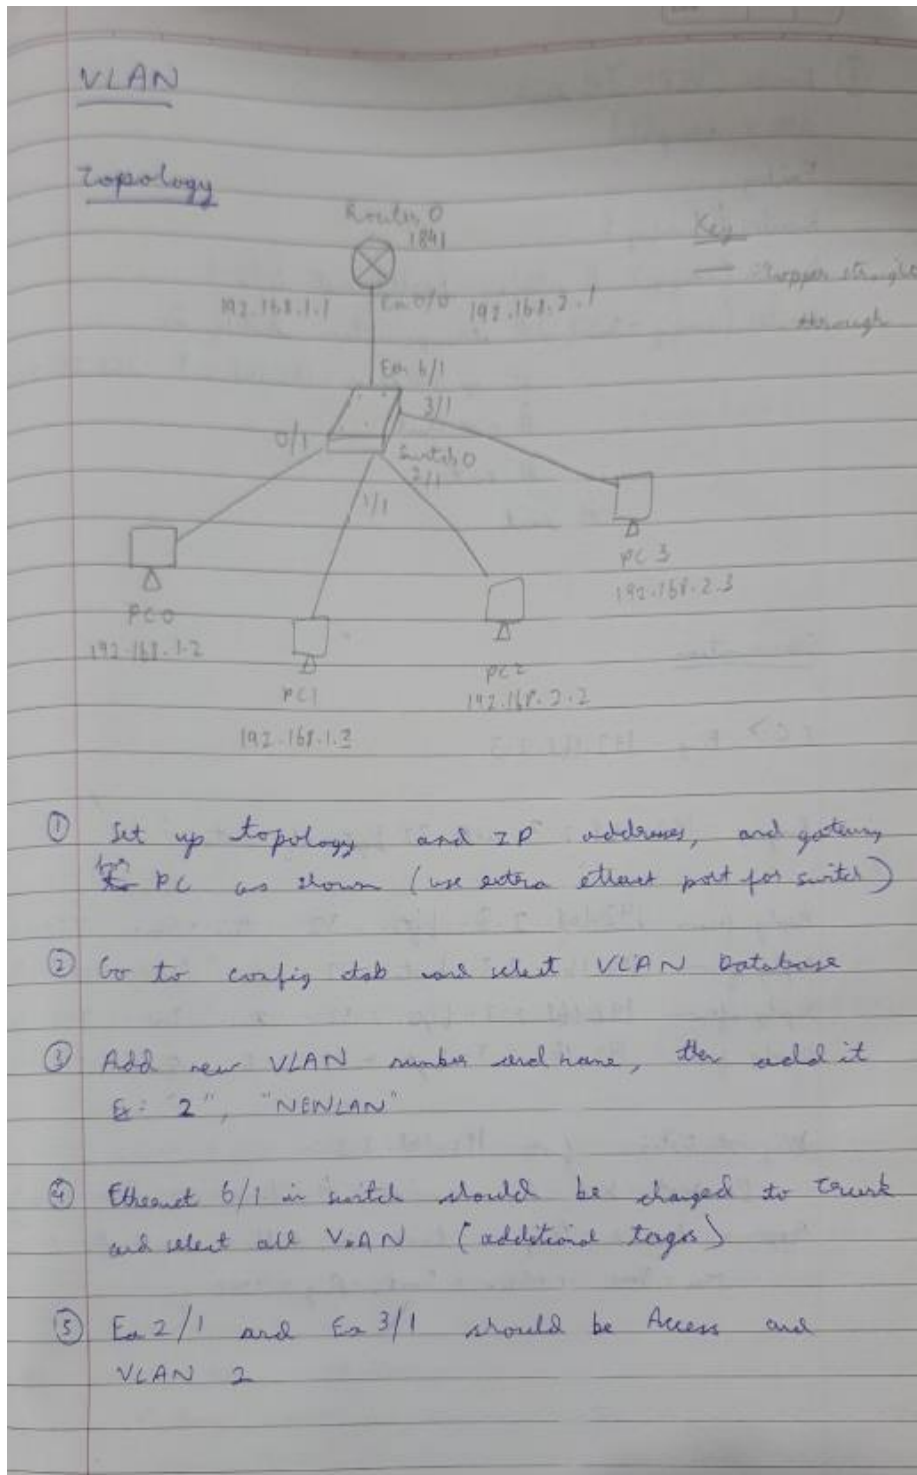 VLAN
Topology
Router 0
1841
Key
Copper straight
through
192.168.1.1
Ea 0/0
192.168.2.1
Ea 6/1
3/1
0/1
Switch 0
2/1
1/1
PC 3
192.168.2.3
PC 0
192.168.1.2
PC 2
192.168.2.2
PC1
192.168.1.3
① Set up topology and IP addresses, and gateway
for PC as shown (use extra ethernet port for switch)
② Go to config tab and select VLAN Database
③ Add new VLAN number and name, then add it
Ex: 2", "NEWLAN"
④ Ethernet 6/1 in switch should be changed to trunk
and select all VLAN (additional tags)
⑤ Ea 2/1 and Ea 3/1 should be Access and
VLAN 2